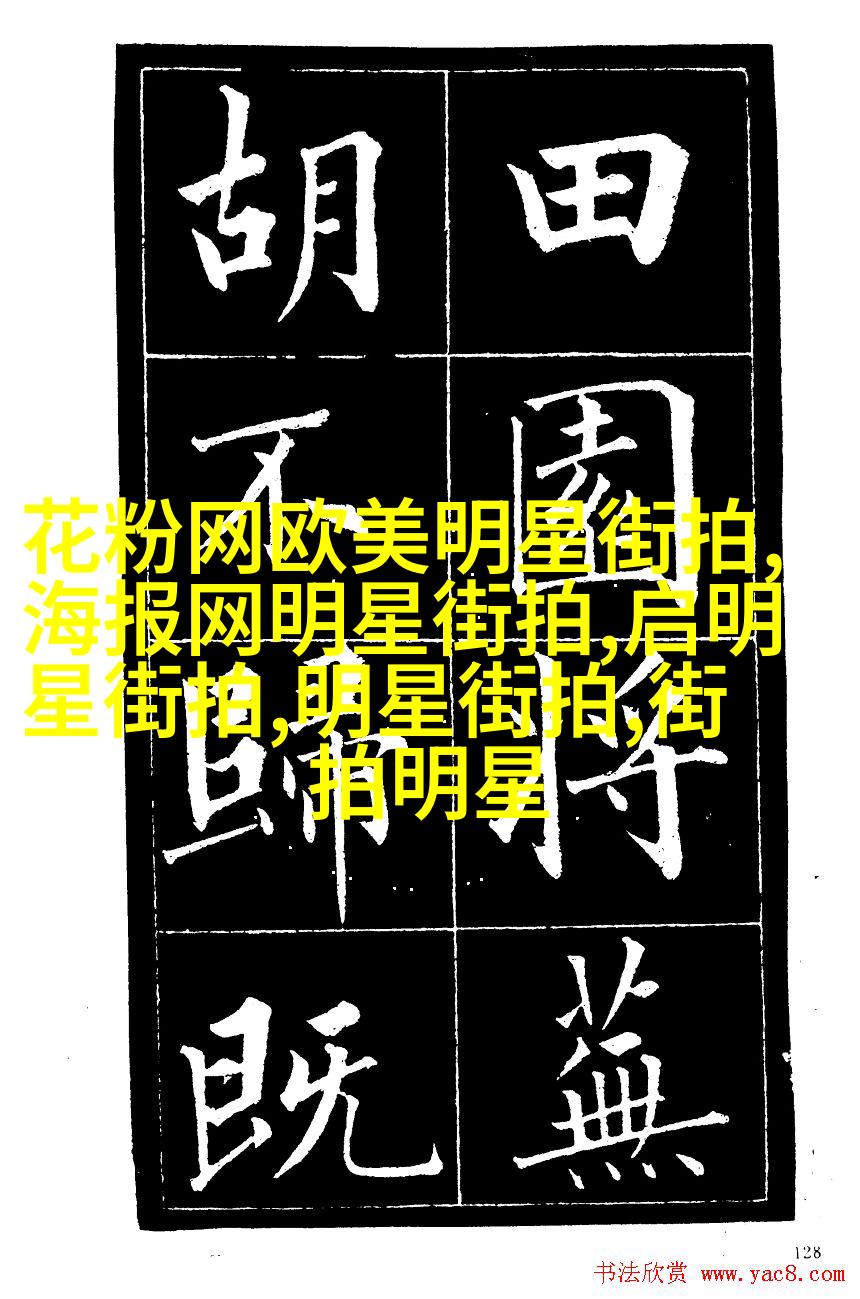 田園將蕪
胡不歸既
花粉网欧美明星街拍,
海报网明星街拍,启明
星街拍,明星街拍,街
拍明星
128
书法欣赏 www.yac8.com